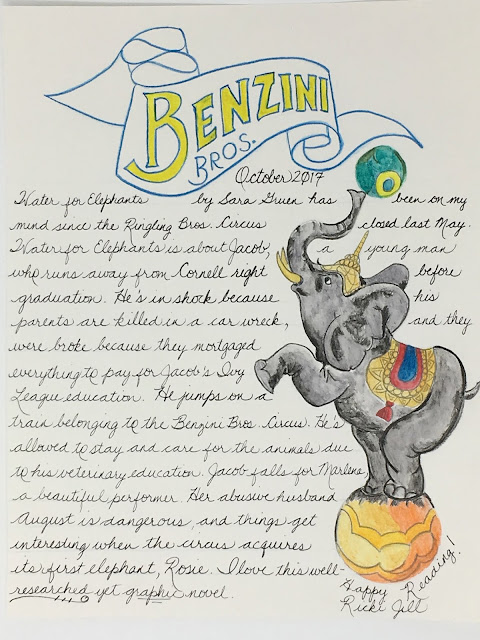 BENZINI
BROS.
October 2017
Water for Elephants by Sara Gruen has been on my
mind since the Ringling Bros. Circus closed last May.
Water for Elephants is about Jacob, a young man
who runs away from Cornell right before
graduation. He's in shock because his
parents are killed in a car wreck, and they
were broke because they mortgaged
everything to pay for Jacob's Ivy
League education. He jumps on a
train belonging to the Benzini Bros. Circus. He's
allowed to stay and care for the animals due
to his veterinary education. Jacob falls for Marlena
a beautiful performer. Her abusive husband
August is dangerous, and things get
interesting when the circus acquires
its first elephant, Rosie. I love this well-
researched yet graphic novel.
Happy Reading!
Ricki Jill